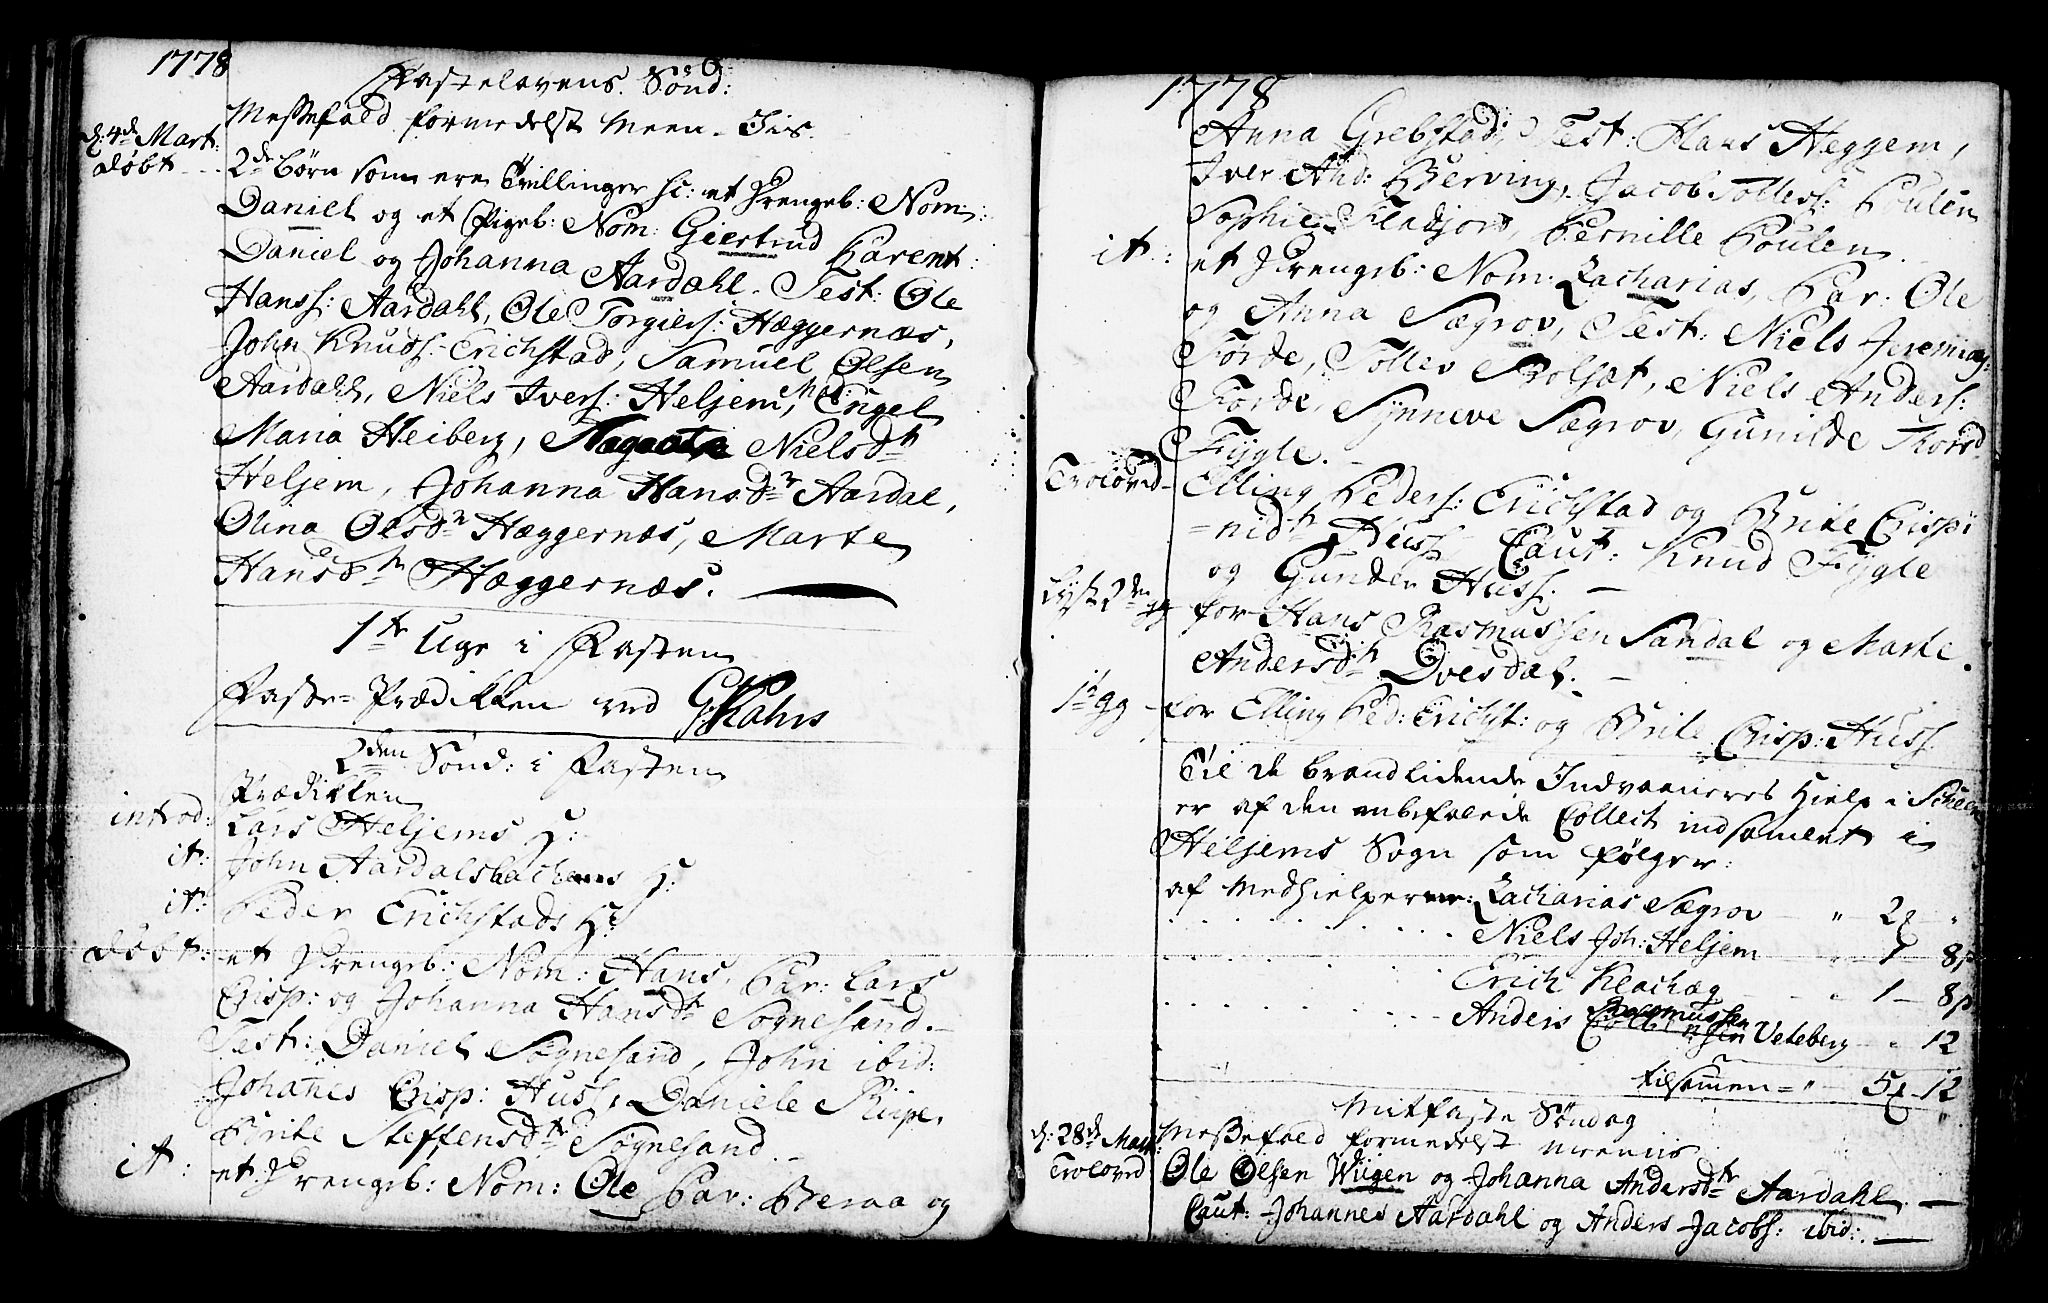 1778
Fastelavens Sönd:
Messefald formedelst Meen-Iis
d: 4de Mart:
döbt
2de börn som ere Tvillinger sc: et Drengeb: Nom:
Daniel og et Pigeb: Nom: Giertrud Parent:
Daniel og Johanna Aardahl. Test: Ole
Hanss: Aardahl, Ole Torgiers: Hæggernæs,
John Knuds: Erichstad, Samuel Olsen
Aardahl, Niels Ivers: Heljem, Mad: Engel
Maria Heiberg, Nielsdtr
Heljem, Johanna Hansdtr Aardal,
Olina Olsdtr Hæggernæs, Marte
Hansdtr Hæggernæs.
1te Uge i Fasten
Faste-Prædikken ved GKahrs
2den Sönd: i Fasten
Prædikken
introd: Lars Heljems H:
it: John Aardalsbachens H:
it: Peder Erichstads H:
döbt: et Drengeb: Nom: Hans, Par: Lars
Crisp: og Johanna Hansdtr Sognesand.
Test: Daniel Sognesand, John ibid:
Johannes Crisp: Huss, Daniele Riipe,
Brite Steffensdtr Sognesand.
it: et Drengeb: Nom: Ole Par: Beraa og
1778
Anna Grebstad, Test: Hans Heggem,
Iver And: Berving, Jacob Tollefs: Poulen
Sophie Fladjord, Pernille Poulen.
it: et Drengeb: Nom: Zacharias, Par: Ole
og Anna Sægrov, Test: Niels Jeremias:
Förde, Tollev Solsæt, Niels Anders:
Förde, Synneve Sægrov, Gunilde Thorsd
Fygle.
Troloved Elling Peders: Erichstad og Brite Crispi
=nidtr Huss, Caut: Knud Fygle
og Gunder Huss.
Lyst 2den gg for Hans Rasmussen Sandal og Marte
Andersdtr Dvesdal.
1te gg for Elling Ped: Erichst: og Brite Crisp: Huss.
Til de brandlidende Indvaaneres Hielp i Scheen
er af den anbefalede Collect indsamlet i
Heljems Sogn som fölger:
af Medhielperne: Zacharias Sægrov " 2 "
Niels Joh: Heljem " 1 8s
Erich Klachæg " 1 8s
Anders Rasmussen Veteberg " 12
tilsamen = " 5 12
Mitfaste Söndag
d: 28de Mart: Messefald formedelst meeniis
Troloved Ole Olsen Wiigen og Johanna Andersdtr Aardahl.
Caut: Johannes Aardahl og Anders Jacobs: ibid:.